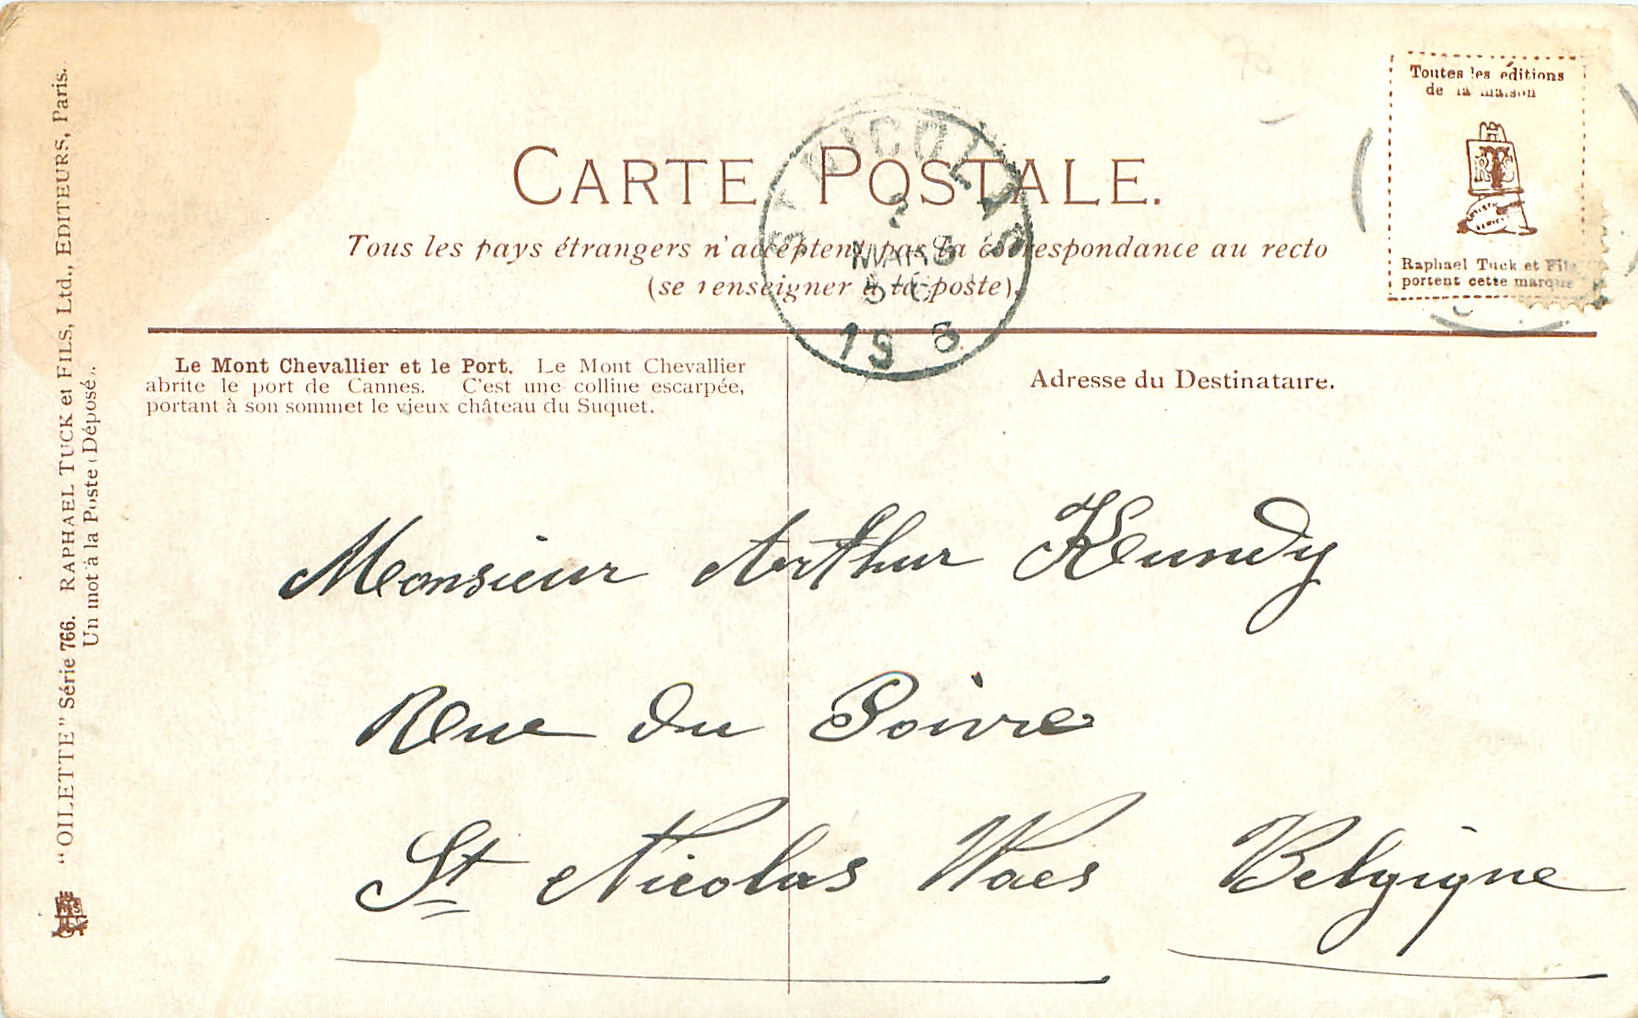 "OILETTE" Série 766. RAPHAEL TUCK et FILS, Ltd., EDITEURS, Paris.
Un mot à la Poste (Déposé).
CARTE POSTALE.
Tous les pays étrangers n'acceptent pas la correspondance au recto
(se renseigner à la poste).
ST NICOLAS
MARS
19 8
Toutes les éditions
de la maison
Raphael Tuck et Fils
portent cette marque
Le Mont Chevallier et le Port. Le Mont Chevallier
abrite le port de Cannes. C'est une colline escarpée,
portant à son sommet le vieux château du Suquet.
Adresse du Destinataire.
Monsieur Arthur
Rue du Poivre
St Nicolas Waes Belgique